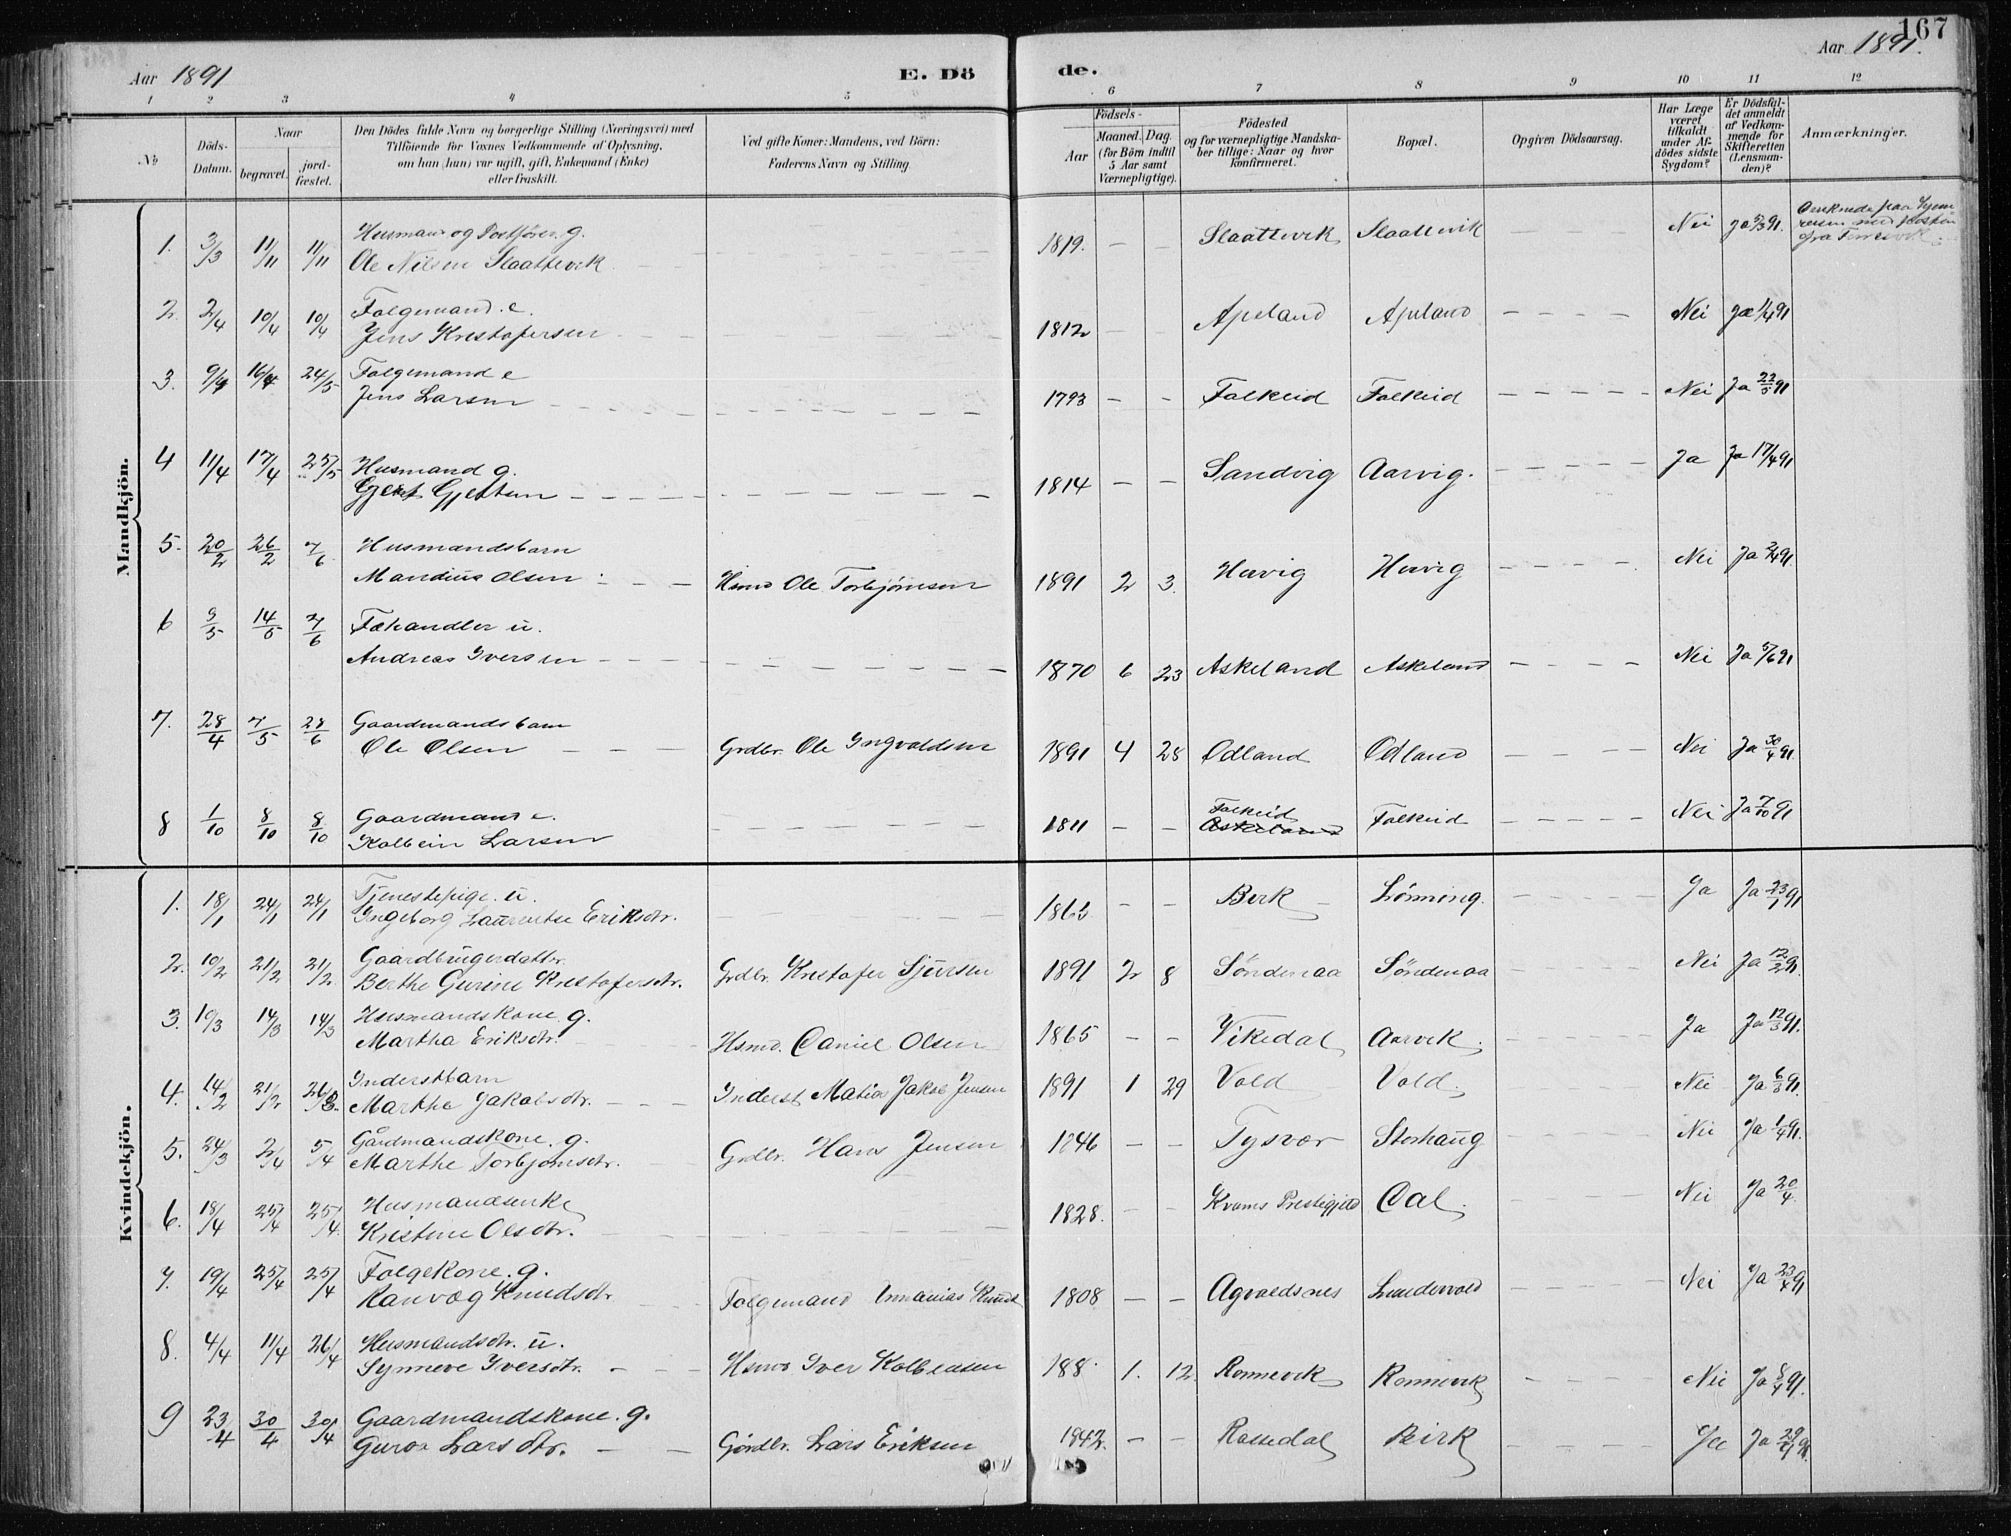 167
Aar 1891
E. Dö
de.
Aar 1891.
1 2 3 4 5 6 7 8 9 10 11 12
No
Döds-
Datum.
Naar
begravet.
jord-
fæstet.
Den Dödes fulde Navn og borgerlige Stilling (Næringsvei) med
Tilföiende for Voxnes Vedkommende af Oplysning,
om han (hun) var ugift, gift, Enkemand (Enke)
eller fraskilt.
Ved gifte Koner: Mandens, ved Börn:
Faderens Navn og Stilling.
Födsels-
Aar
Maaned. Dag.
(for Börn indtil
5 Aar samt
Værnepligtige).
Födested
og for værnepligtige Mandska-
ber tillige: Naar og hvor
konfirmeret.
Bopæl.
Opgiven Dödsaarsag.
Har Læge
været
tilkaldt
under Af-
dödes sidste
Sygdom?
Er Dödsfal-
det anmeldt
af Vedkom-
mende for
Skifteretten
(Lensman-
den)?
Anmærkninger.
Mandkjön.
1. 3/3 11/11 11/11 Husmand og g.
Ole Nilsen Slaattevik 1819. - - Slaattevik Slaattevik Nei Ja 91.
2. 2/4 10/4 10/4 Folgemand. e.
Jens Kristofersen 1812 - Apeland Apeland - - - - Nei Ja 91
3. 9/4 16/4 24/5 Folgemand e
Jens Larsen 1793 - - Falkeid Falkeid - - - - Nei Ja 22/5 91
4 11/4 17/4 25/5 Husmand g.
Gjert Gjertsen 1814 - - Sandvig Aarvig. - - - - Ja Ja 17/4 91
5. 20/2 26/2 7/6 Husmandsbarn
Mandius Olsen Hsmd Ole Torbjörnsen 1891 2 3. Hervig Hervig - - - - Nei Ja 91.
6 9/5 14/5 7/6 Fæhandler u.
Andreas Iversen 1870 6 23 Askeland Askeland - - - Nei Ja 5/6 91
7. 28/4 7/5 28/6 Gaardmandsbarn
Ole Olsen Grdbr. Ole Ingvaldsen 1891 4 28 Odland Odland - - - - Nei Ja 30/4 91.
8 1/10 8/10 8/10 Gaardmand e.
Kolbein Larsen 1811 - - Falkeid Askeland Falkeid Nei Ja 7/10 91
Kvindekjön.
1. 18/1 24/1 24/1 Tjenestepige. u.
Ingeborg Laurentse Eriksdtr. 1863 - - Birk Lönning. Ja Ja 23/1 91
2. 10/2 21/2 21/2 Gaardbrugerdatter
Berthe Gurine Kristofersdtr. Grdbr. Kristofer Sjursen 1891 2 8 Söndenaa Söndenaa Nei Ja 12/2 91.
3. 10/3 14/3 14/3 Husmandskone g.
Martha Eriksdtr. Hsmd. Daniel Olsen 1865 - - Vikedal Aarvik. Ja Ja 12/3 91.
4. 14/2 21/2 26/3. Inderstbarn
Martha Jakobsdtr. Inderst Matias Jakob Jensen 1891 1 29 Vold Vold. Nei Ja 6/3 91.
5. 24/3 2/4 5/4 Gårdmandskone. g.
Marthe Torbjörnsdtr. Grdbr. Hans Jensen 1846 - - Tysvær Storhaug Nei Ja 1/4 91.
6. 18/4 25/4 25/4. Husmandsenke
Kristine Olsdtr. 1828. - - Kvams Prestegjeld Dal. Nei Ja 20/4.
7. 19/4 25/4 25/4 Folgekone. g.
Ranvæg Knudsdtr Folgemand Knud 1808 - - Agvaldsnes Nei Ja 23/4 91
8. 4/4 11/4 26/4 Husmandsdtr. u.
Synneve Iversdtr. - - Hsmd Iver Kolbensen 188 1. 12 Ronnevik Ronnevik Nei Ja 8/4 91.
9 23/4 30/4 30/4 Gaardmandskone. g.
Guroa Larsdtr. - - Gårdbr. Lars Eriksen 1842. - - Rossedal Birk Ja Ja 29/4 91.